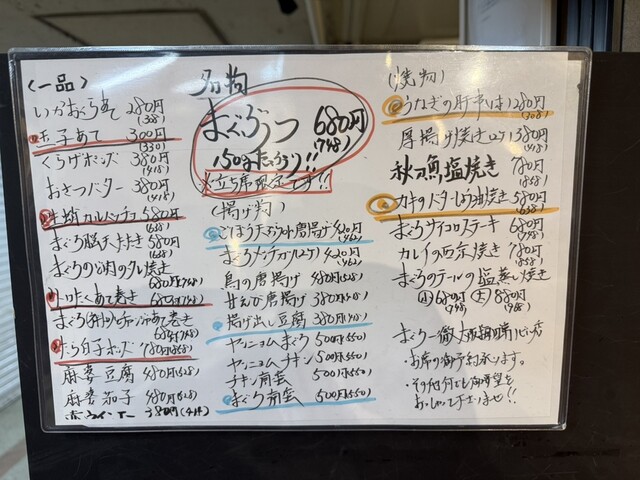 〈一品〉
いかおくらあて 280円
(308)
玉子あて 300円
(330)
くらげポンズ 380円
(418)
おさつバター 380円
(418)
580円
(638)
まぐろ脳天 580円
(638)
まぐろの 肉のタレ焼き
680円(748)
あて巻き 680円(748)
まぐろ あて巻き
たら白子ポンズ 780円(858)
麻婆豆腐 480円(528)
麻婆茄子 480円(528)
380円(418)
名物
まぐぶつ 680円
(748)
150gたっぷり!!
※立ち席限定です!!
(揚げ物)
ごぼう天 唐揚げ 420円
(462)
まぐろメンチカツ 420円
(462)
鳥の唐揚げ 480円(528)
甘えび唐揚げ 380円(418)
揚げ出し豆腐 380円(418)
ヤンニョムまぐろ 500円(550)
ヤンニョムチキン 500円(550)
チキン南蛮 500円(550)
まぐろ南蛮 500円(550)
(焼物)
うなぎの肝串 1本 280円
(308)
厚揚げ焼き 380円
(418)
秋刀魚塩焼き 780円
(858)
カキのバターしょうゆ焼き 580円
(638)
まぐろサイコロステーキ 680円
(748)
カレイの一夜焼き 780円
(858)
まぐろのテールの塩蒸し焼き
小 680円 大 880円
(748) (968)
まぐろ一徹
・お席の御予約承ります。
・その他何でも御要望を
おっしゃって下さいませ!!